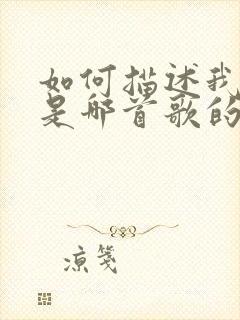 如何描述我
是那首歌的
凉笺